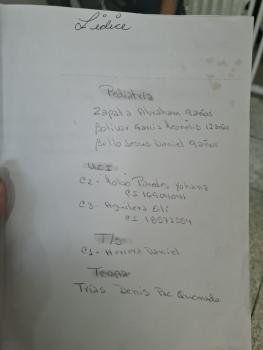 Lidice
Pediatría
Zapata Abraham 9 años
Bolivar Garcia Leonelis 12 años
Bello Jesus Daniel 9 años
UCI
C2- Lobo Paredes Yohana
CI 16904041
C3- Aguilera Eli
CI 18577554
T/S
C1- Herrera Daniel
Terapia
Trias Denis Pac Quemado